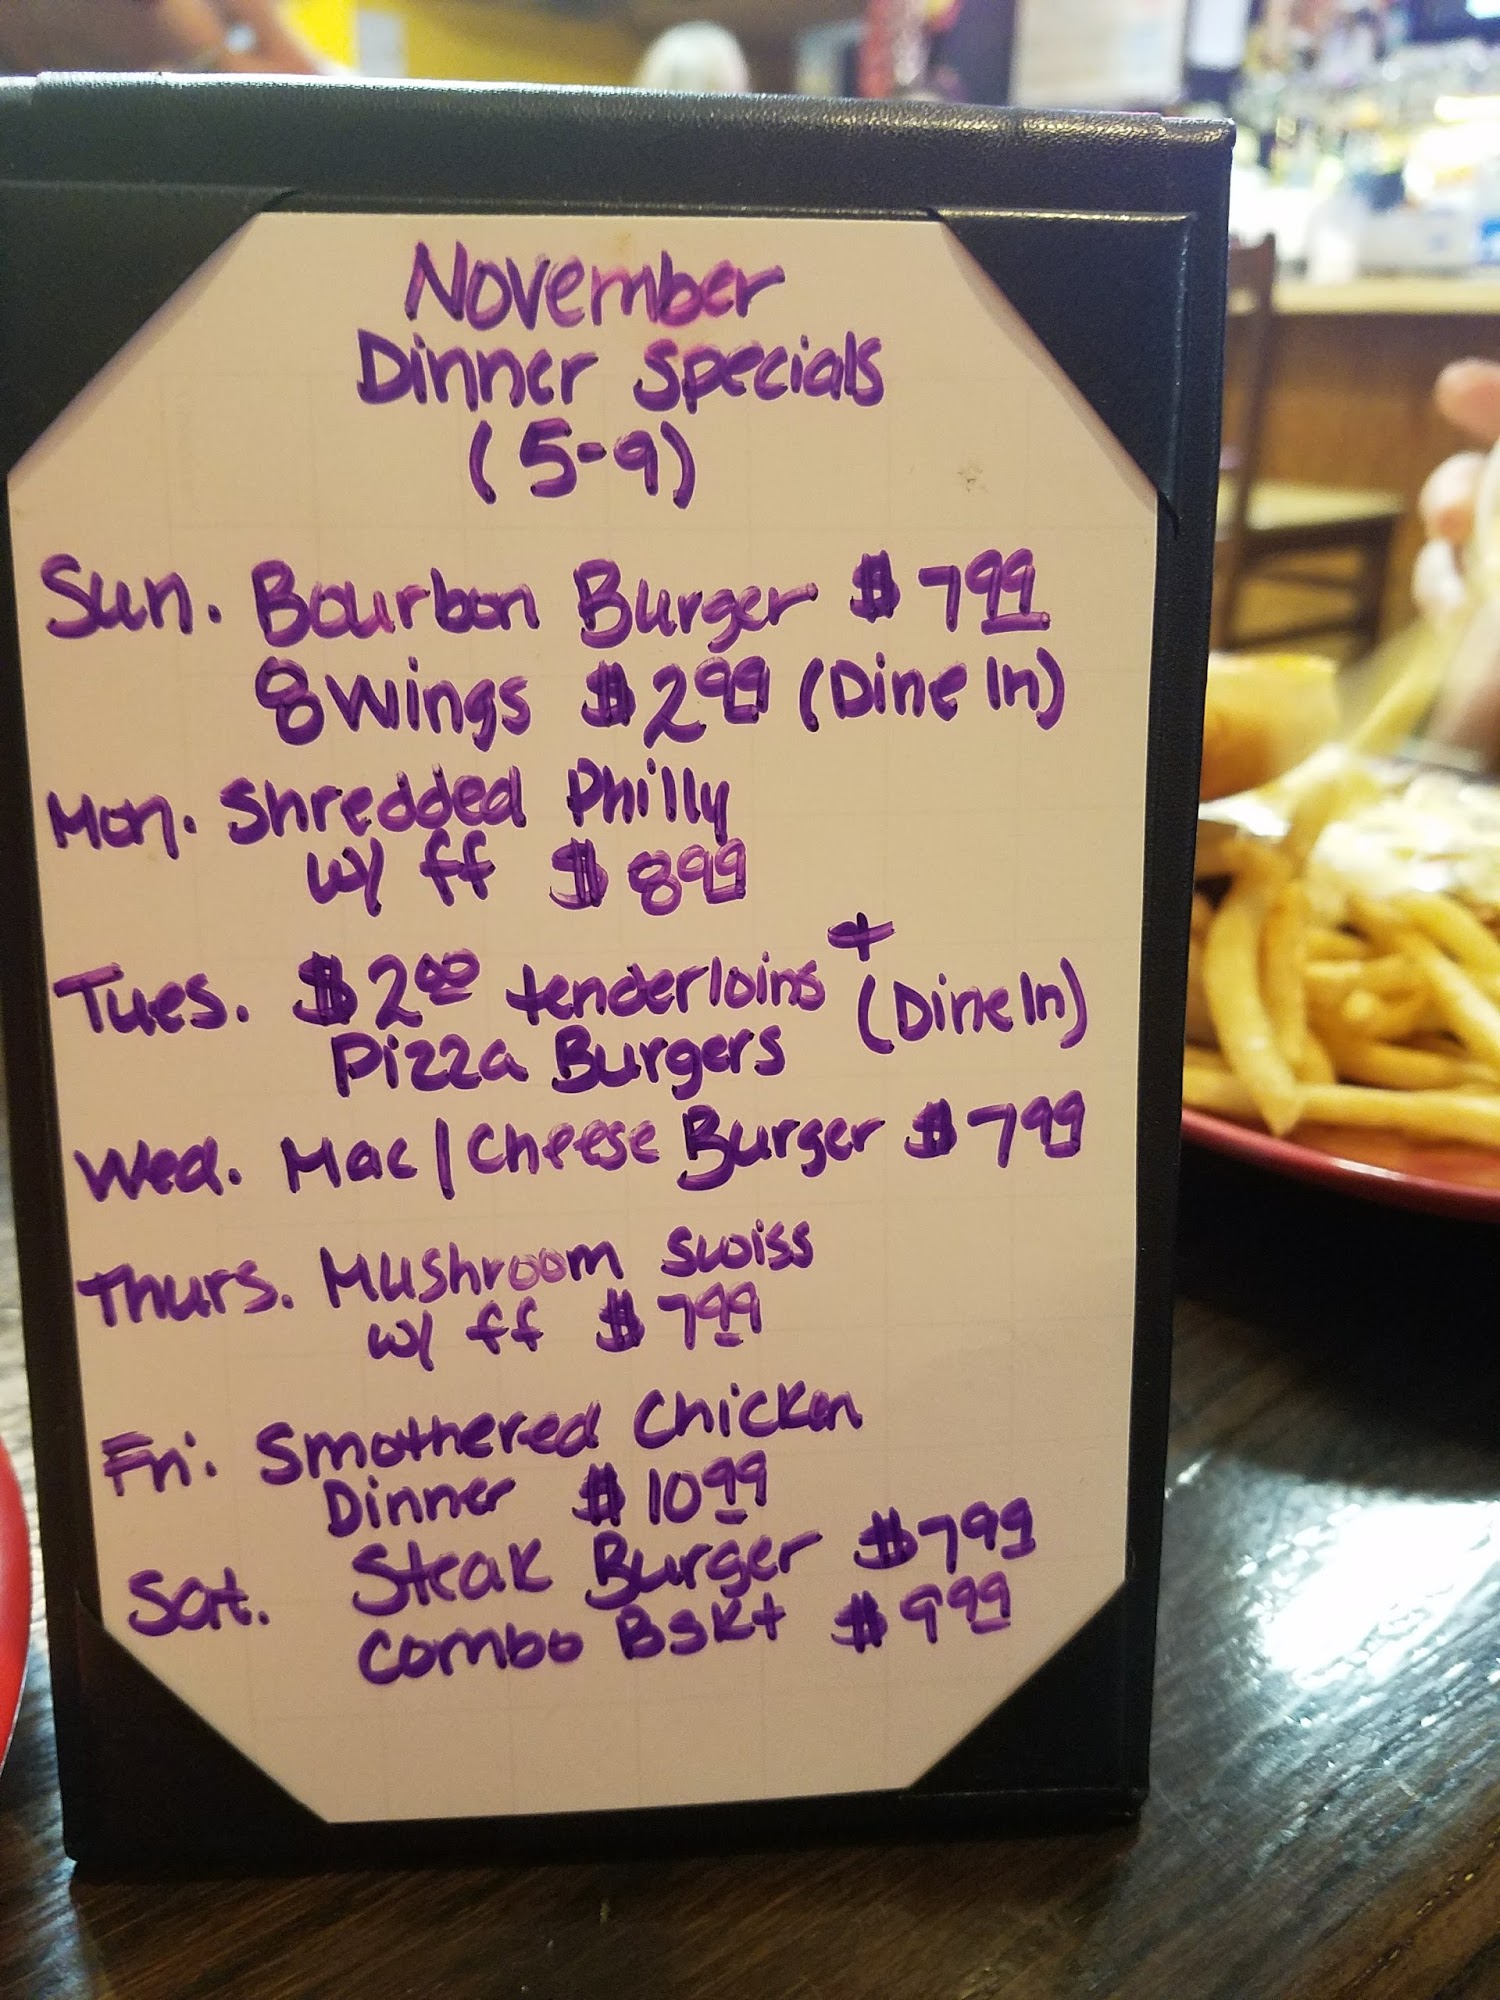 November
Dinner Specials
(5-9)
Sun. Bourbon Burger $7.99
8 Wings $2.99 (Dine In)
Mon. Shredded Philly
w/ ff $8.99
Tues. $2.00 tenderloins +
Pizza Burgers (Dine In)
Wed. Mac/Cheese Burger $7.99
Thurs. Mushroom Swiss
w/ ff $7.99
Fri. Smothered Chicken
Dinner $10.99
Sat. Steak Burger $7.99
Combo Bskt $9.99